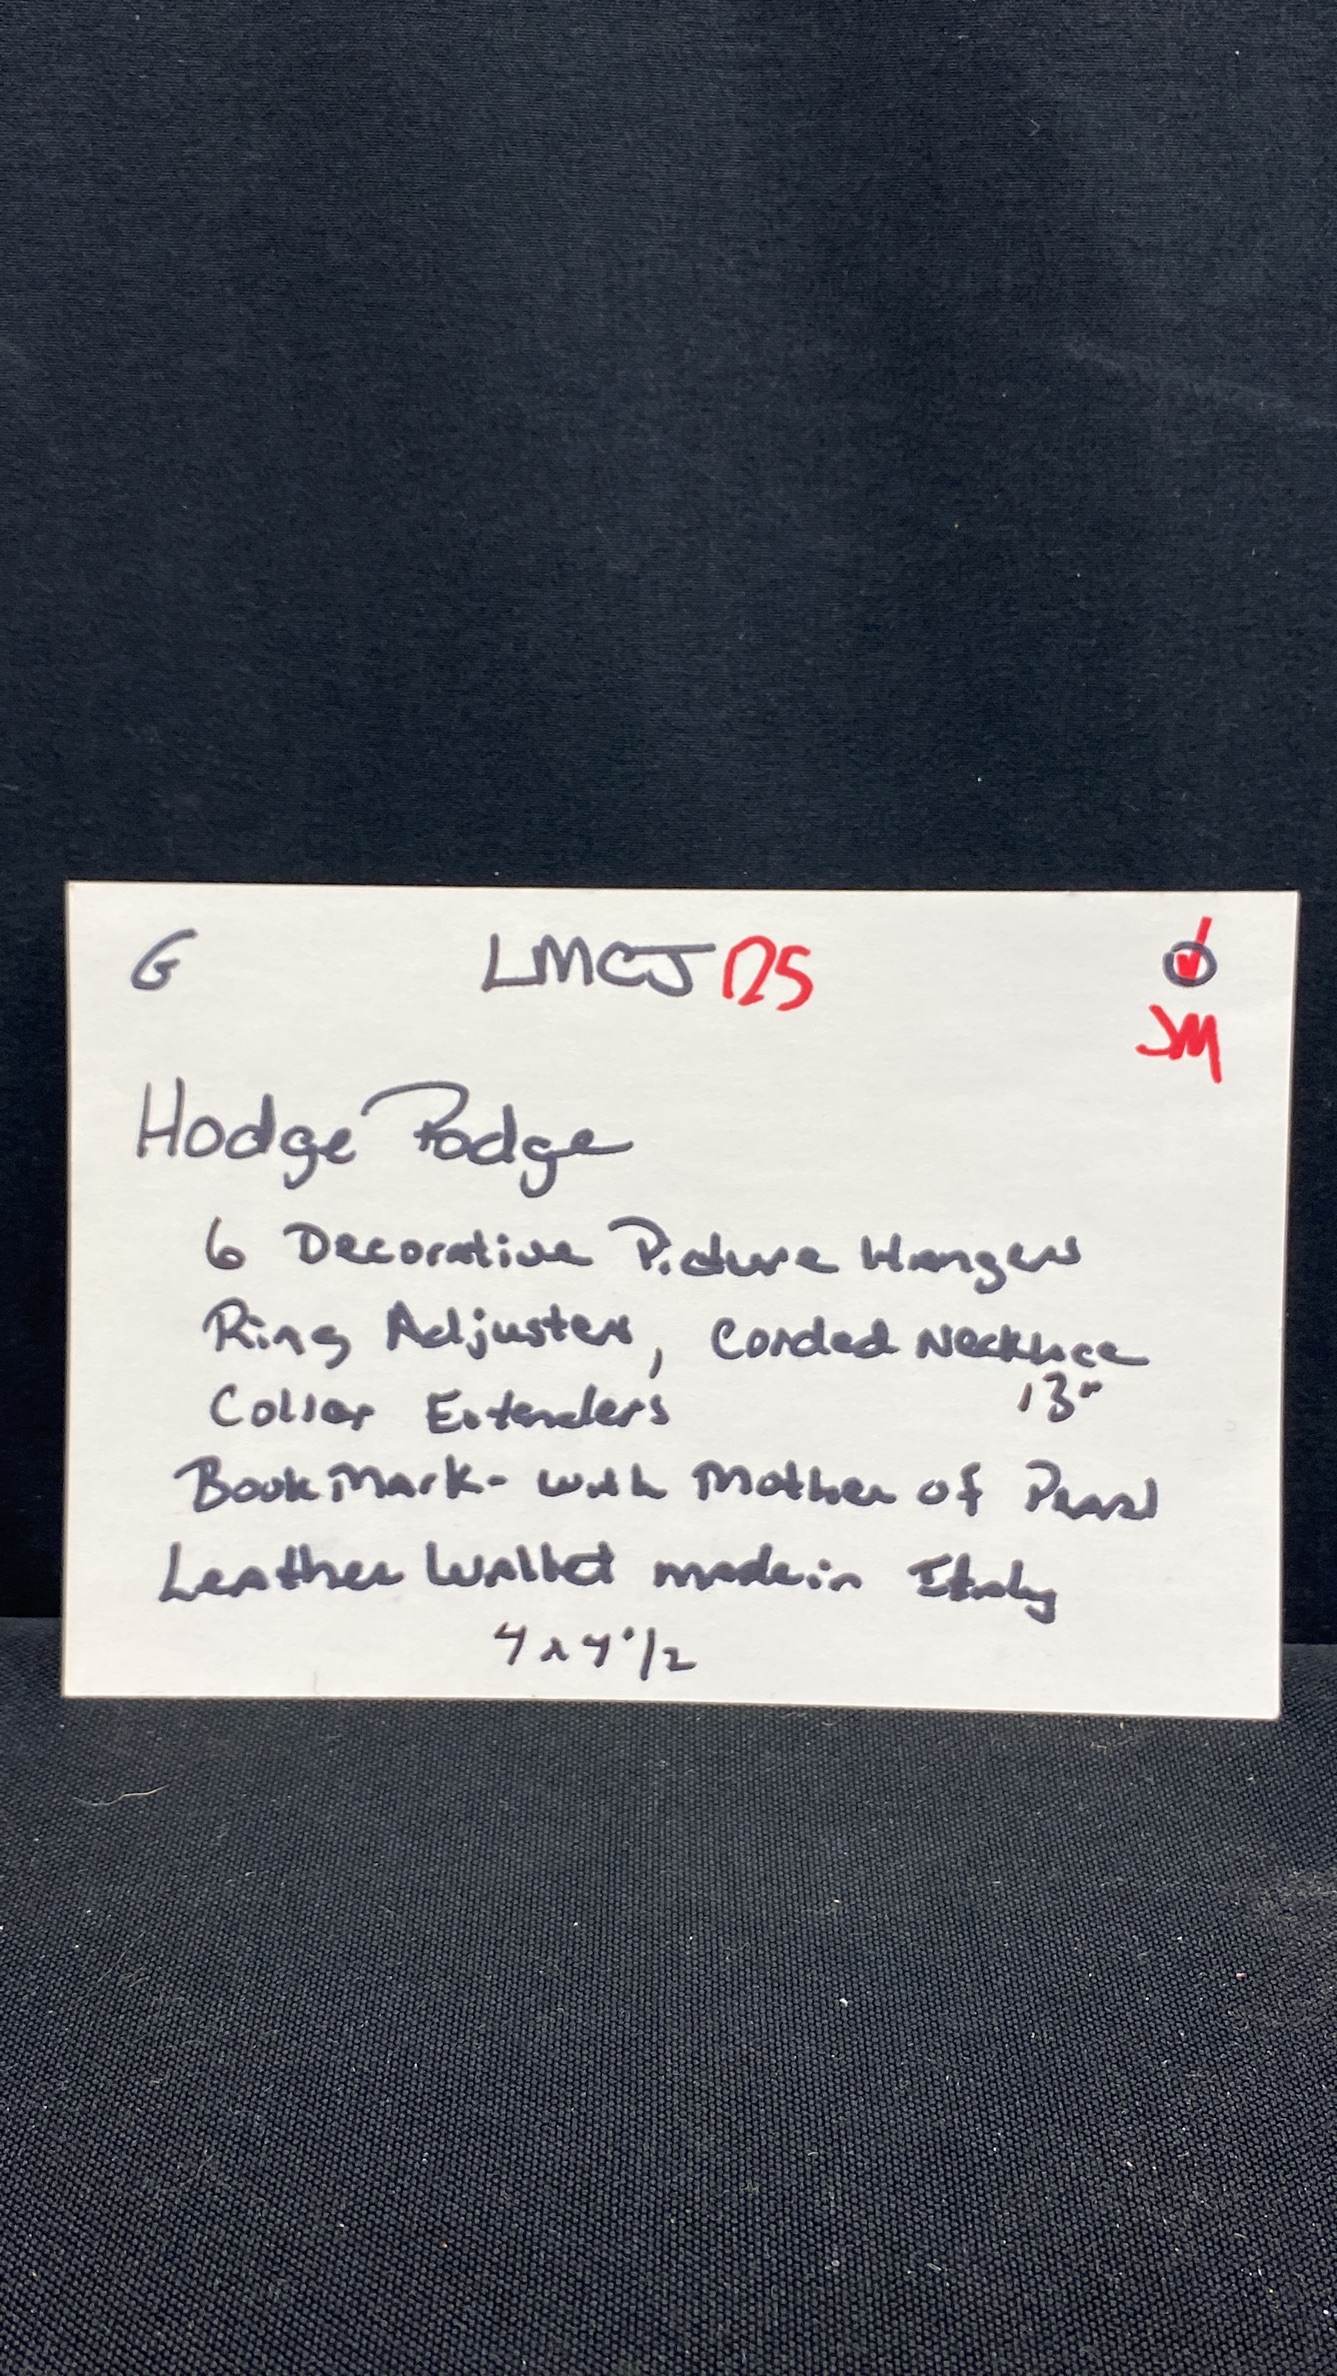 G LMCJ 125
JM
Hodge Podge
6 Decorative Picture Hangers
Ring Adjusters, Corded Necklace
Collar Extenders 13"
Book Mark - with Mother of Pearl
Leather Wallet made in Italy
4 x 4 1/2